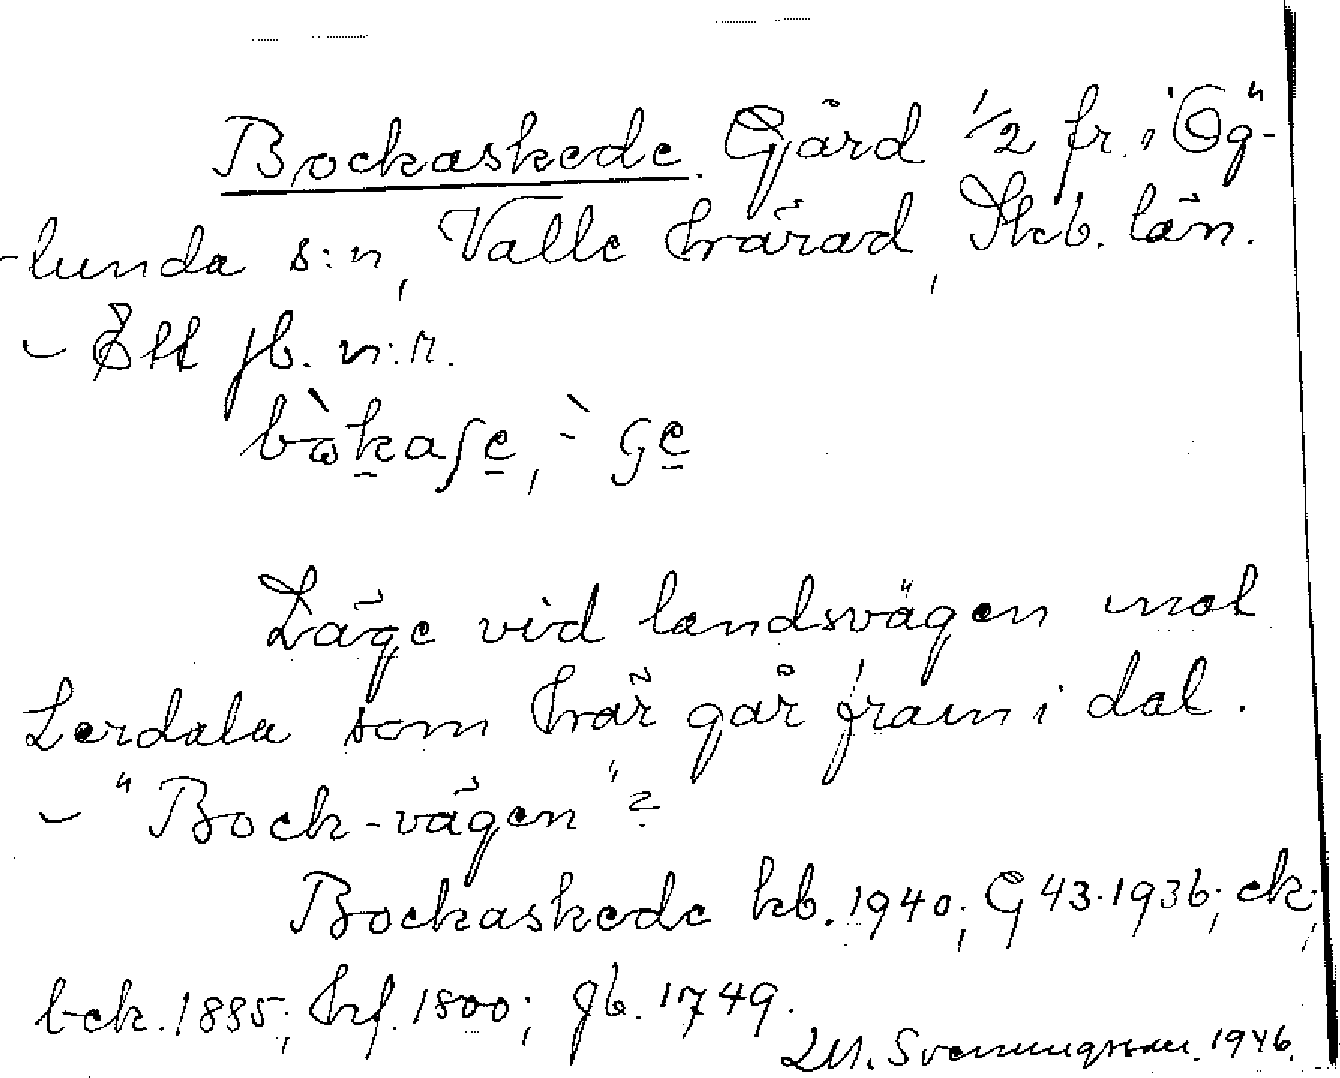 Bockaskede. Gård 1/2 fr. i Ög-
-lunda s:n, Valle härad, Skb. län.
- Ett jb. n:r.
bòkaʃe, -̀ ʃe
Läge vid landsvägen mot
Lerdala som här går fram i dal.
- "Bock-vägen"?
Bockaskede kb. 1940; G 43. 1936; ek;
bek. 1885; hf. 1800; jb. 1749.
M. Svenungsson. 1946.